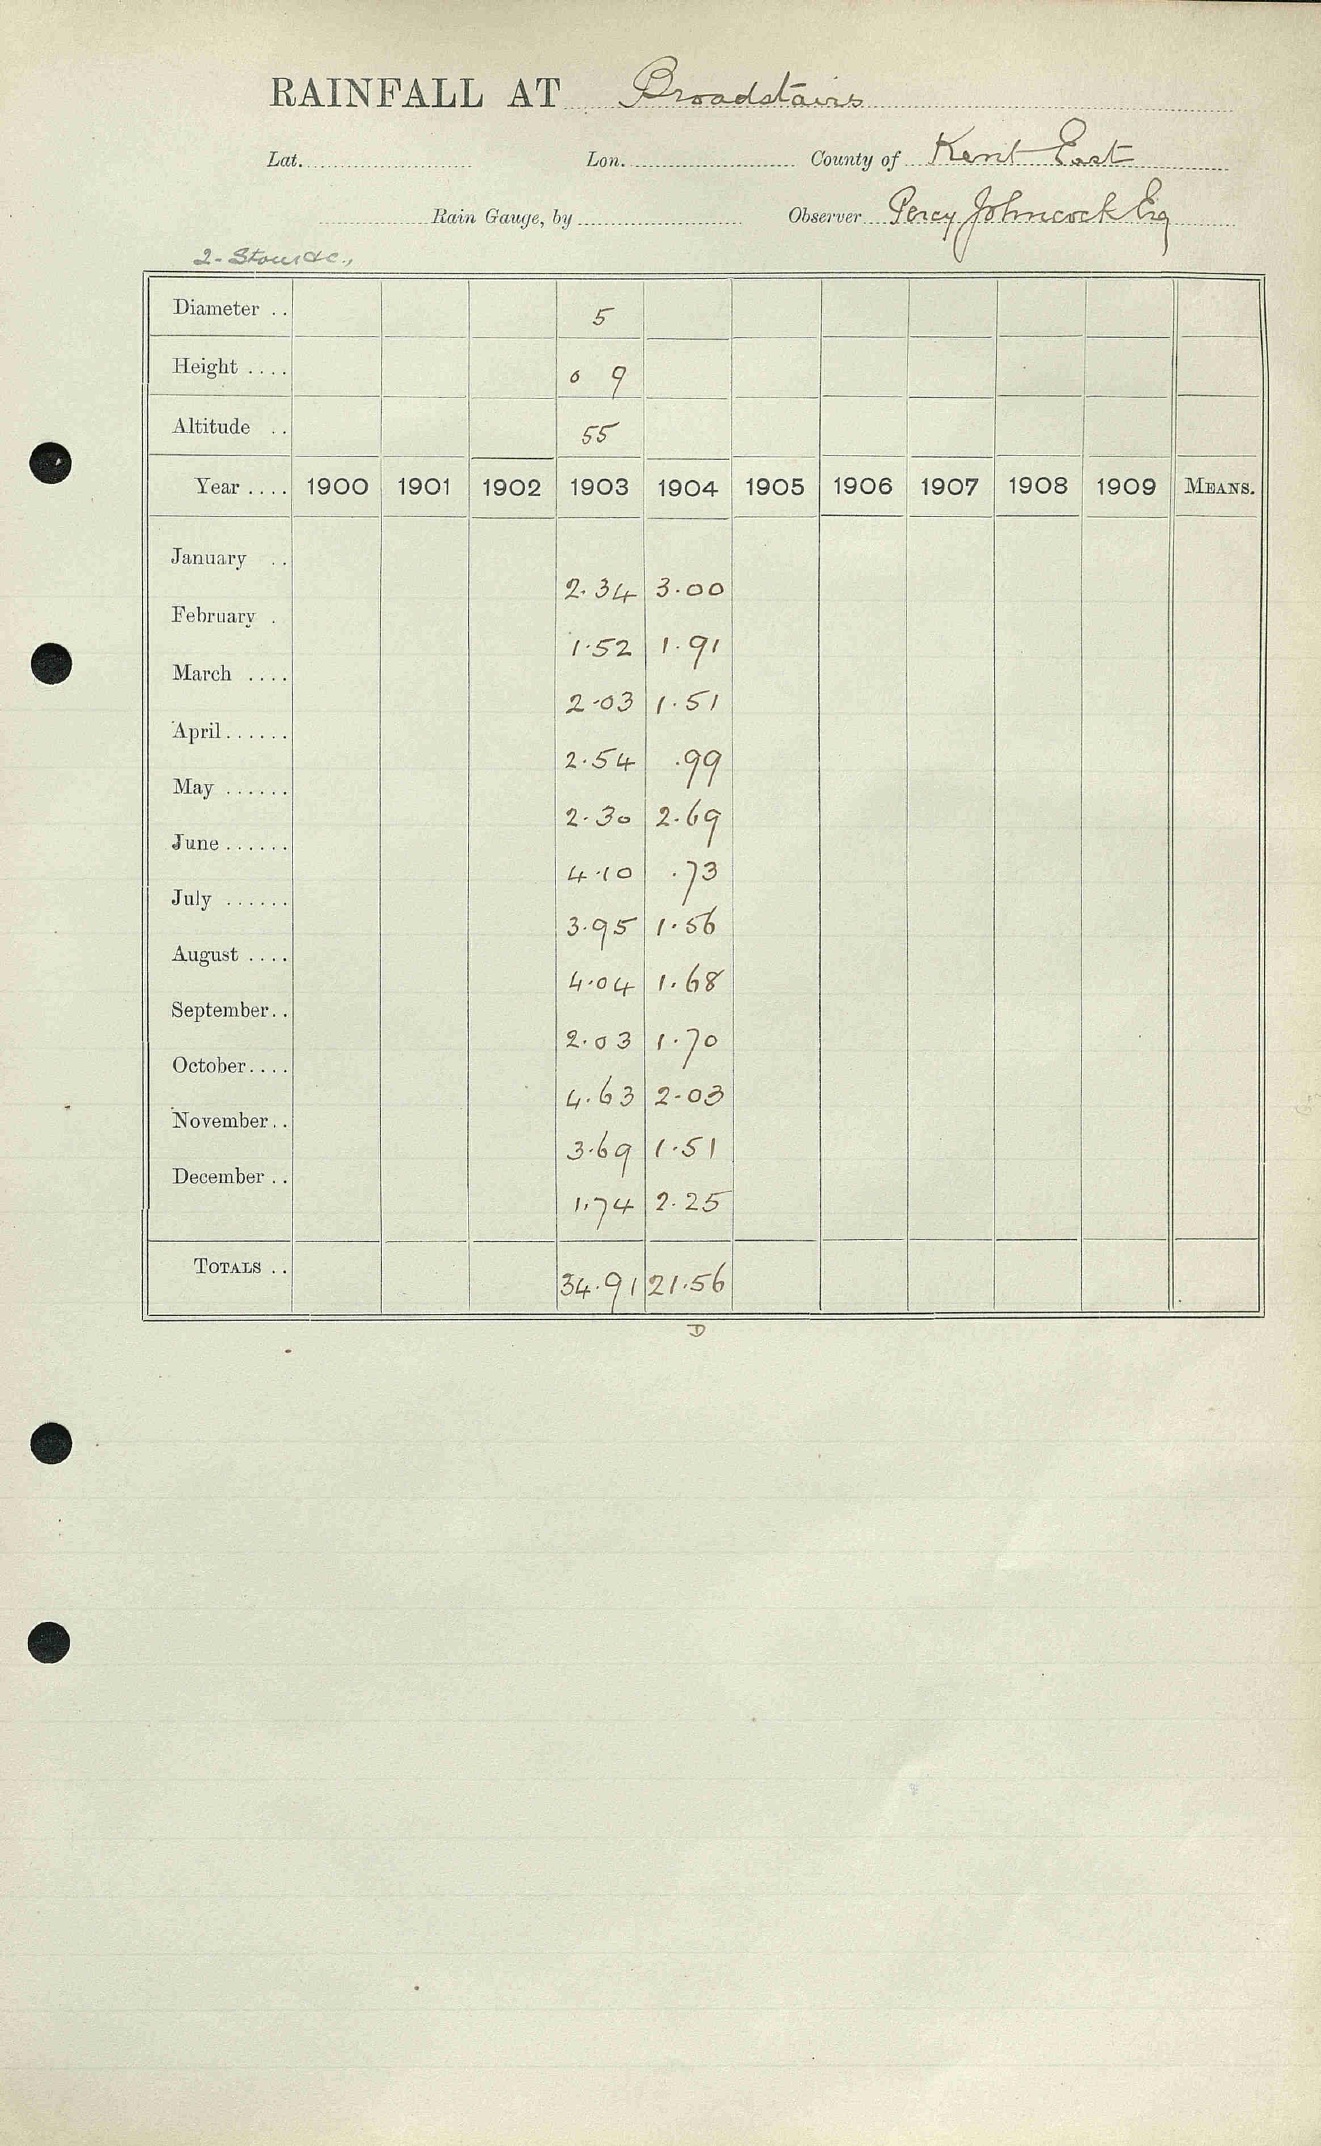 RAINFALL AT Broadstairs
Lat. Lon. County of Kent East
Rain Gauge, by Observer Percy Johncock Esq
2- Stour &c.,
Diameter .. 5
Height .... 0 9
Altitude .. 55
Year .... 1900 1901 1902 1903 1904 1905 1906 1907 1908 1909 MEANS.
January .. 2.34 3.00
February . 1.52 1.91
March .... 2.03 1.51
April...... 2.54 .99
May ...... 2.30 2.69
June ...... 4.10 .73
July ...... 3.95 1.56
August .... 4.04 1.68
September.. 2.03 1.70
October.... 4.63 2.03
November.. 3.69 1.51
December .. 1.74 2.25
TOTALS .. 34.91 21.56
D